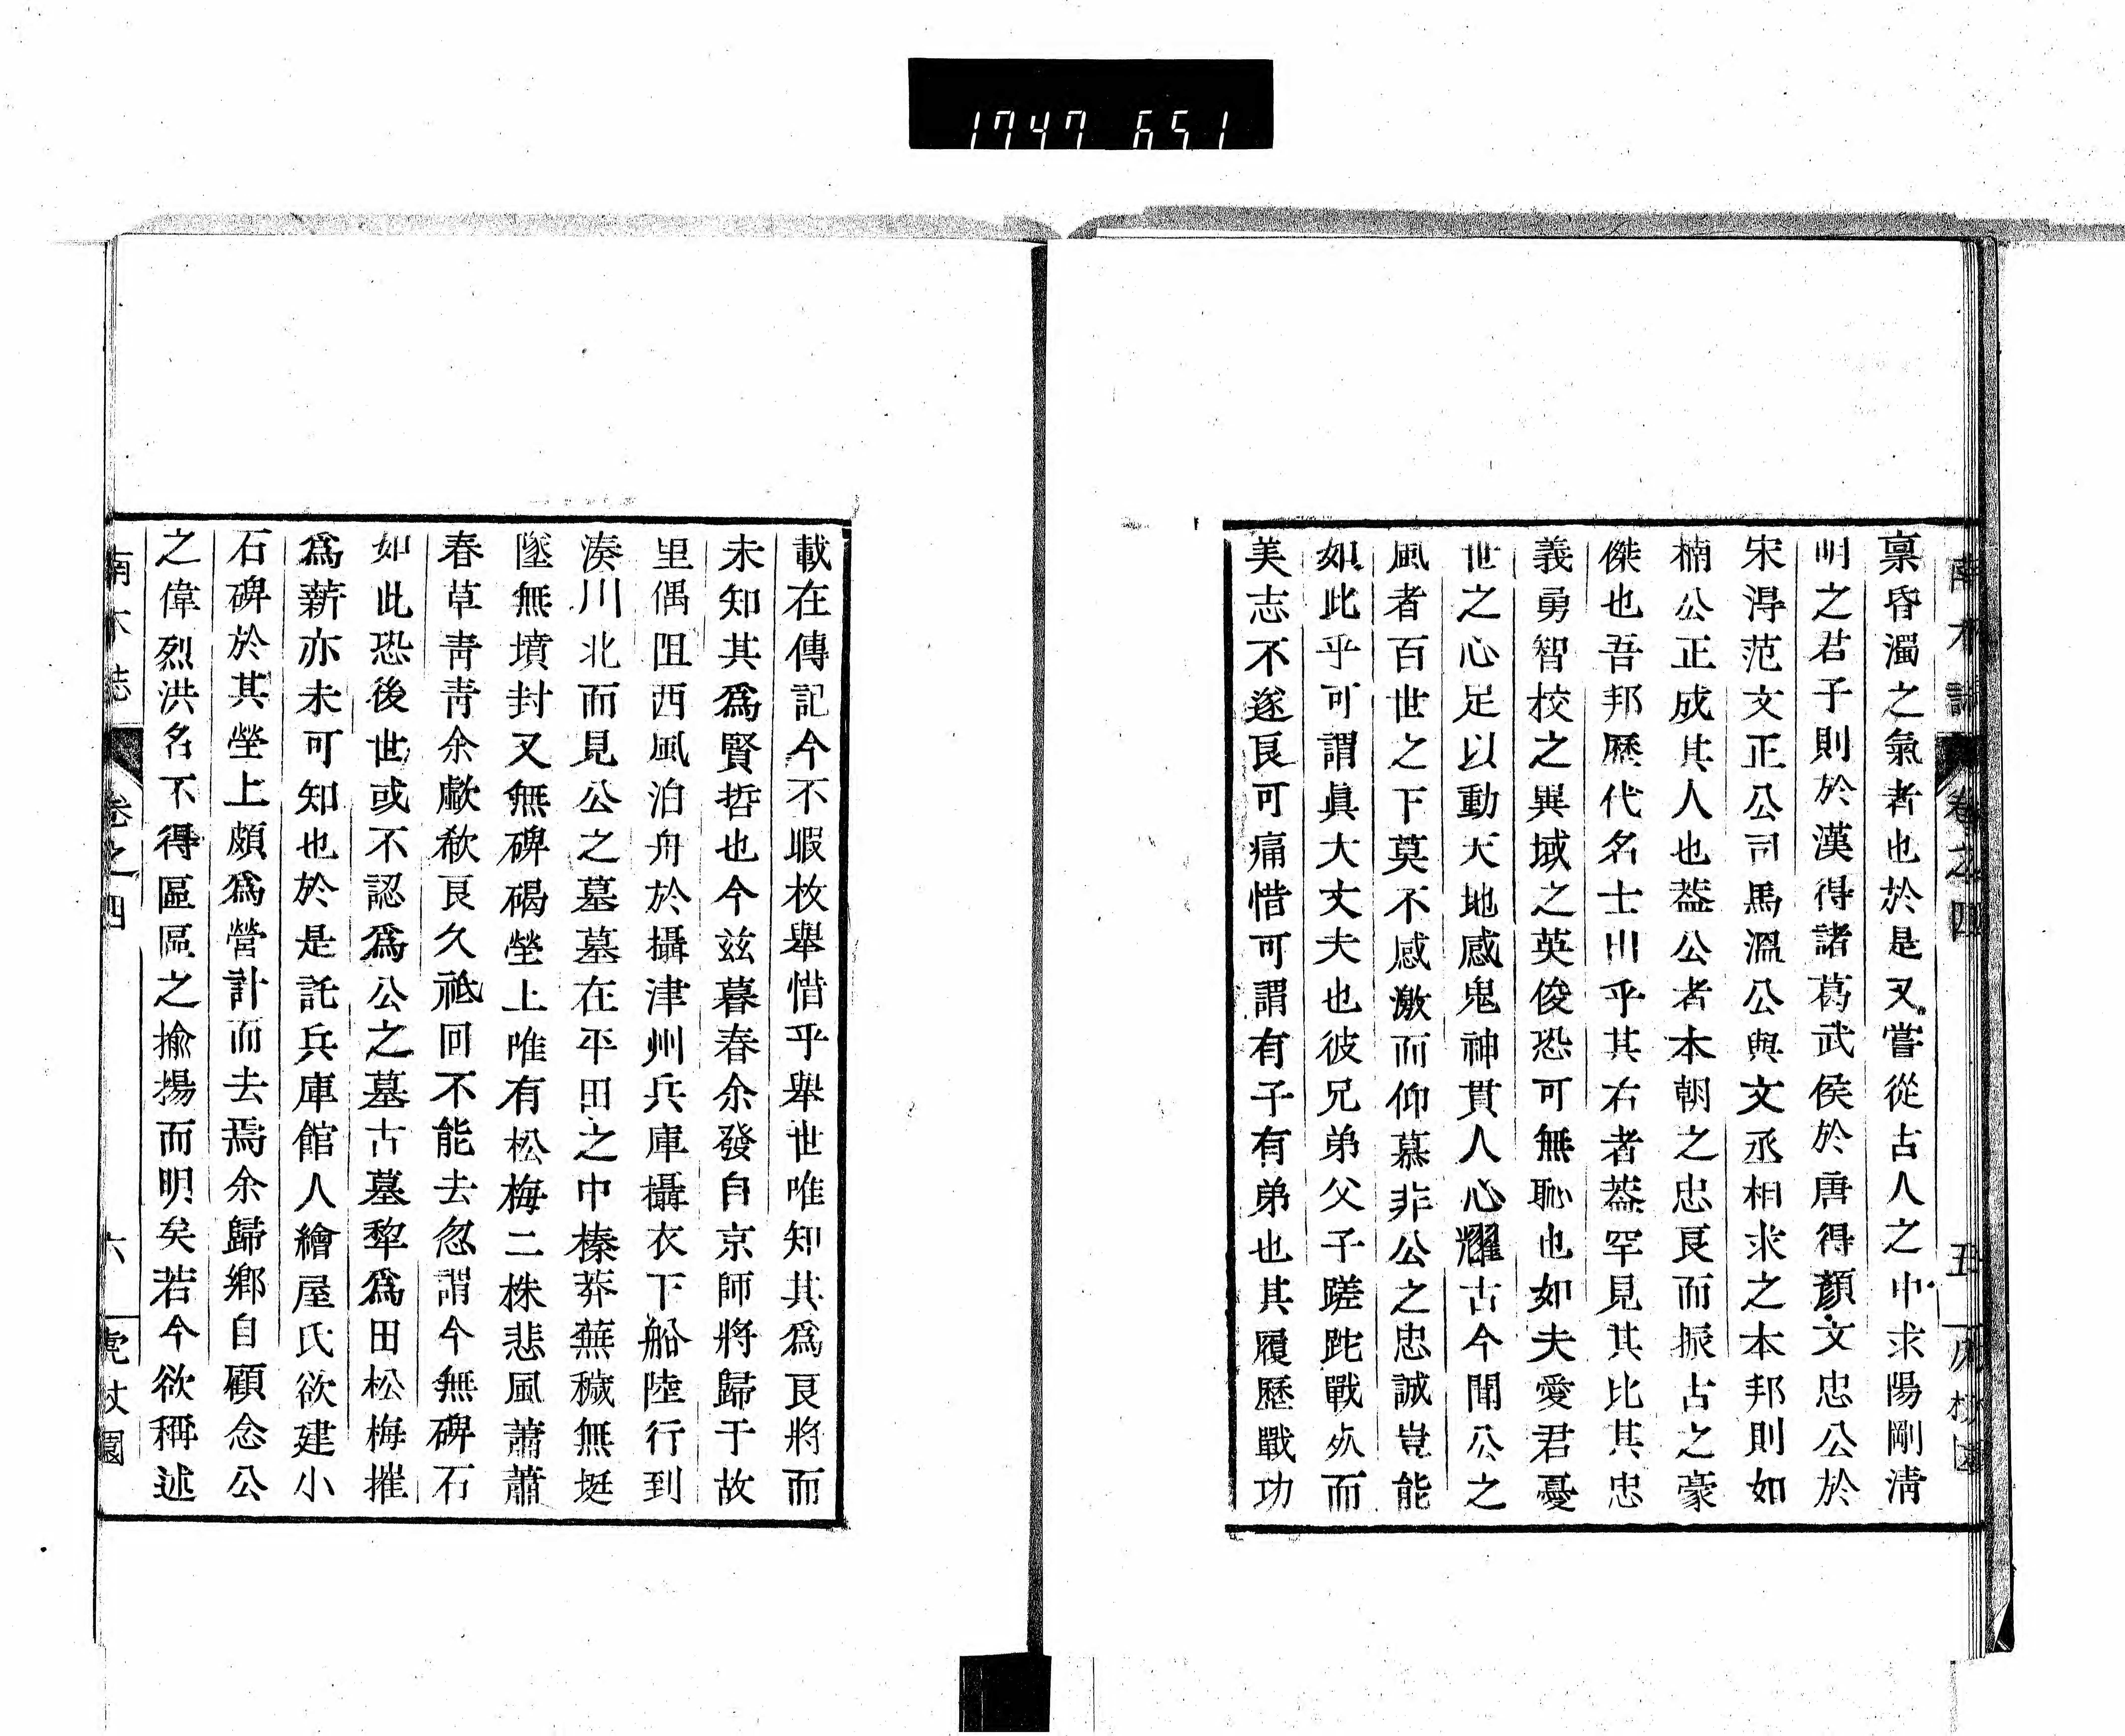 1747 651
南木誌 卷之四 五
稟昏濁之氣者也於是又嘗從古人之中求陽剛淸
明之君子則於漢得諸葛武侯於唐得顏文忠公於
宋淂范文正公司馬溫公與文丞相求之本邦則如
楠公正成其人也葢公者本朝之忠良而振古之豪
傑也吾邦歷代名士出乎其右者葢罕見其比其忠
義勇智校之異域之英俊恐可無恥也如夫愛君憂
世之心足以動天地感鬼神貫人心耀古今聞公之
風者百世之下莫不感激而仰慕非公之忠誠豈能
如此乎可謂眞大丈夫也彼兄弟父子蹉跎戰㱥而
美志不遂良可痛惜可謂有子有弟也其履歷戰功
載在傳記今不暇枚舉惜乎舉世唯知其爲良將而
未知其爲賢哲也今玆暮春余發自京師將歸于故
里偶阻西風泊舟於攝津州兵庫攝衣下船陸行到
湊川北而見公之墓墓在平田之中榛莽蕪穢無埏
墜無墳封又無碑碣塋上唯有松梅二株悲風蕭蕭
春草靑靑余歔欷良久祗回不能去忽謂今無碑石
如此恐後世或不認爲公之墓古墓犂爲田松梅摧
爲薪亦未可知也於是託兵庫館人繪屋氏欲建小
石碑於其塋上頗爲營計而去焉余歸鄕自顧念公
之偉烈洪名不得區區之揄揚而明矣若今欲稱述
南木誌 卷之四 六 虎杖園